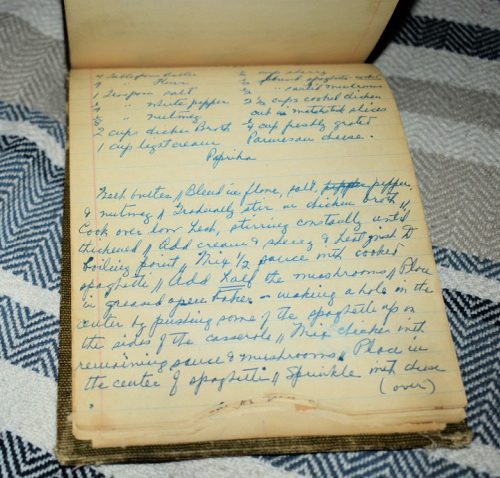 4 tablespoon butter
4 " Flour
1 teaspoon salt
" white pepper
" nutmeg
2 cup chicken Broth
1 cup light cream
Paprika
cup sherry
pound spaghetti - cooked
" sauted mushrooms
2 1/2 cups cooked chicken
cut in matchstick slices
1/4 cup freshly grated
Parmesan cheese.
Melt butter // Blend in flour, salt, pepper,
& nutmeg // Gradually stir in chicken broth //
Cook over low heat, stirring constantly until
thickened // Add cream & sherry & heat just to
boiling point // Mix 1/2 sauce with cooked
spaghetti // Add half the mushrooms // Place
in greased open baker - making a hole in the
center by pushing some of the spaghetti up on
the sides of the casserole // Mix chicken with
remaining sauce & mushrooms. Place in
the center of spaghetti // Sprinkle with cheese
(over)